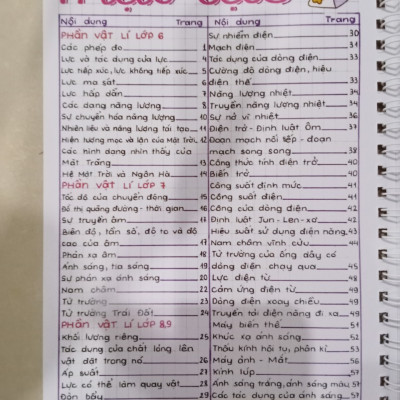 Nội dung Trang
PHẦN VẬT LÍ LỚP 6
Các phép đo 1
Lực và tác dụng của lực 4
Lực tiếp xúc, lực không tiếp xúc 5
Lực ma sát 6
Lực hấp dẫn 7
Các dạng năng lượng 8
Sự chuyển hóa năng lượng 10
Nhiên liệu và năng lượng tái tạo 11
Hiện tượng mọc và lặn của Mặt Trời 12
Các hình dạng nhìn thấy của
Mặt Trăng 13
Hệ Mặt Trời và Ngân Hà 14
PHẦN VẬT LÍ LỚP 7
Tốc độ của chuyển động 15
Đồ thị quãng đường - thời gian 16
Sự truyền âm 17
Biên độ, tần số, độ to và độ
cao của âm 17
Phản xạ âm 18
Ánh sáng, tia sáng 19
Sự phản xạ ánh sáng 20
Nam châm 22
Từ trường 23
Từ trường Trái Đất 24
PHẦN VẬT LÍ LỚP 8,9
Khối lượng riêng 25
Tác dụng của chất lỏng lên
vật đặt trong nó 26
Áp suất 27
Lực có thể làm quay vật 28
Đòn bẩy 29
Nội dung Trang
Sự nhiễm điện 30
Mạch điện 31
Tác dụng của dòng điện 33
Cường độ dòng điện, hiệu
điện thế 33
Năng lượng nhiệt 34
Truyền năng lượng nhiệt 34
Sự nở vì nhiệt 36
Điện trở - Định luật Ôm 37
Đoạn mạch nối tiếp - đoạn
mạch song song 38
Công thức tính điện trở 40
Biến trở 40
Công suất định mức 41
Công suất điện 41
Công của dòng điện 41
Định luật Jun - Len-xơ 42
Hiệu suất sử dụng điện năng 43
Nam châm vĩnh cửu 44
Từ trường của ống dây có
dòng điện chạy qua 45
Lực điện từ 48
Cảm ứng điện từ 49
Dòng điện xoay chiều 49
Truyền tải điện năng đi xa 49
Máy biến thế 51
Khúc xạ ánh sáng 51
Thấu kính hội tụ, phân kì 53
Máy ảnh - Mắt 56
Kính lúp 57
Ánh sáng trắng, ánh sáng màu 57
Các tác dụng của ánh sáng 57